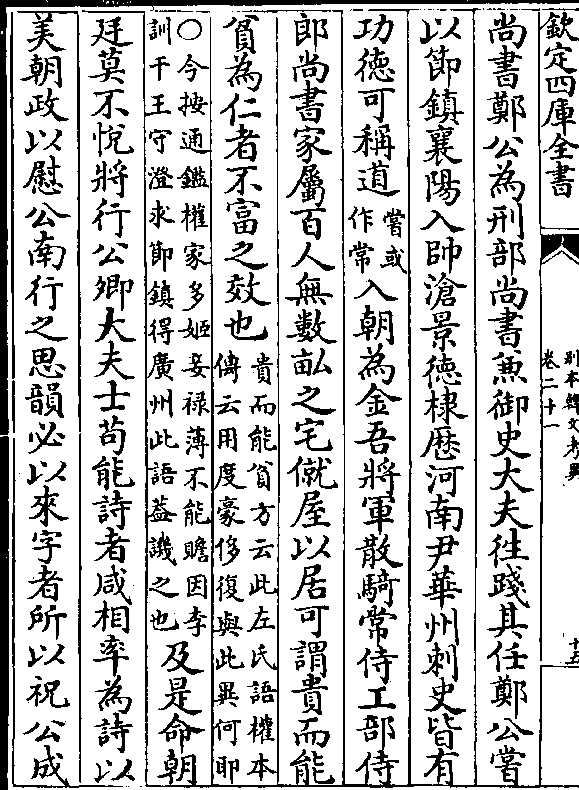 欽定四庫全書
別本韓文考異
卷二十一
十五
尚書鄭公為刑部尚書兼御史大夫往踐其任鄭公嘗
以節鎮襄陽入帥滄景德棣歷河南尹華州刺史皆有
功德可稱道嘗或作常入朝為金吾將軍散騎常侍工部侍
郎尚書家屬百人無數畝之宅僦屋以居可謂貴而能
貧為仁者不富之效也貴而能貧方云此左氏語權本傳云用度豪侈復與此異何耶
○今按通鑑權家多姬妾祿薄不能贍因李訓干王守澄求節鎮得廣州此語蓋譏之也及是命朝
廷莫不悅將行公卿大夫士苟能詩者咸相率為詩以
美朝政以慰公南行之思韻必以來字者所以祝公成